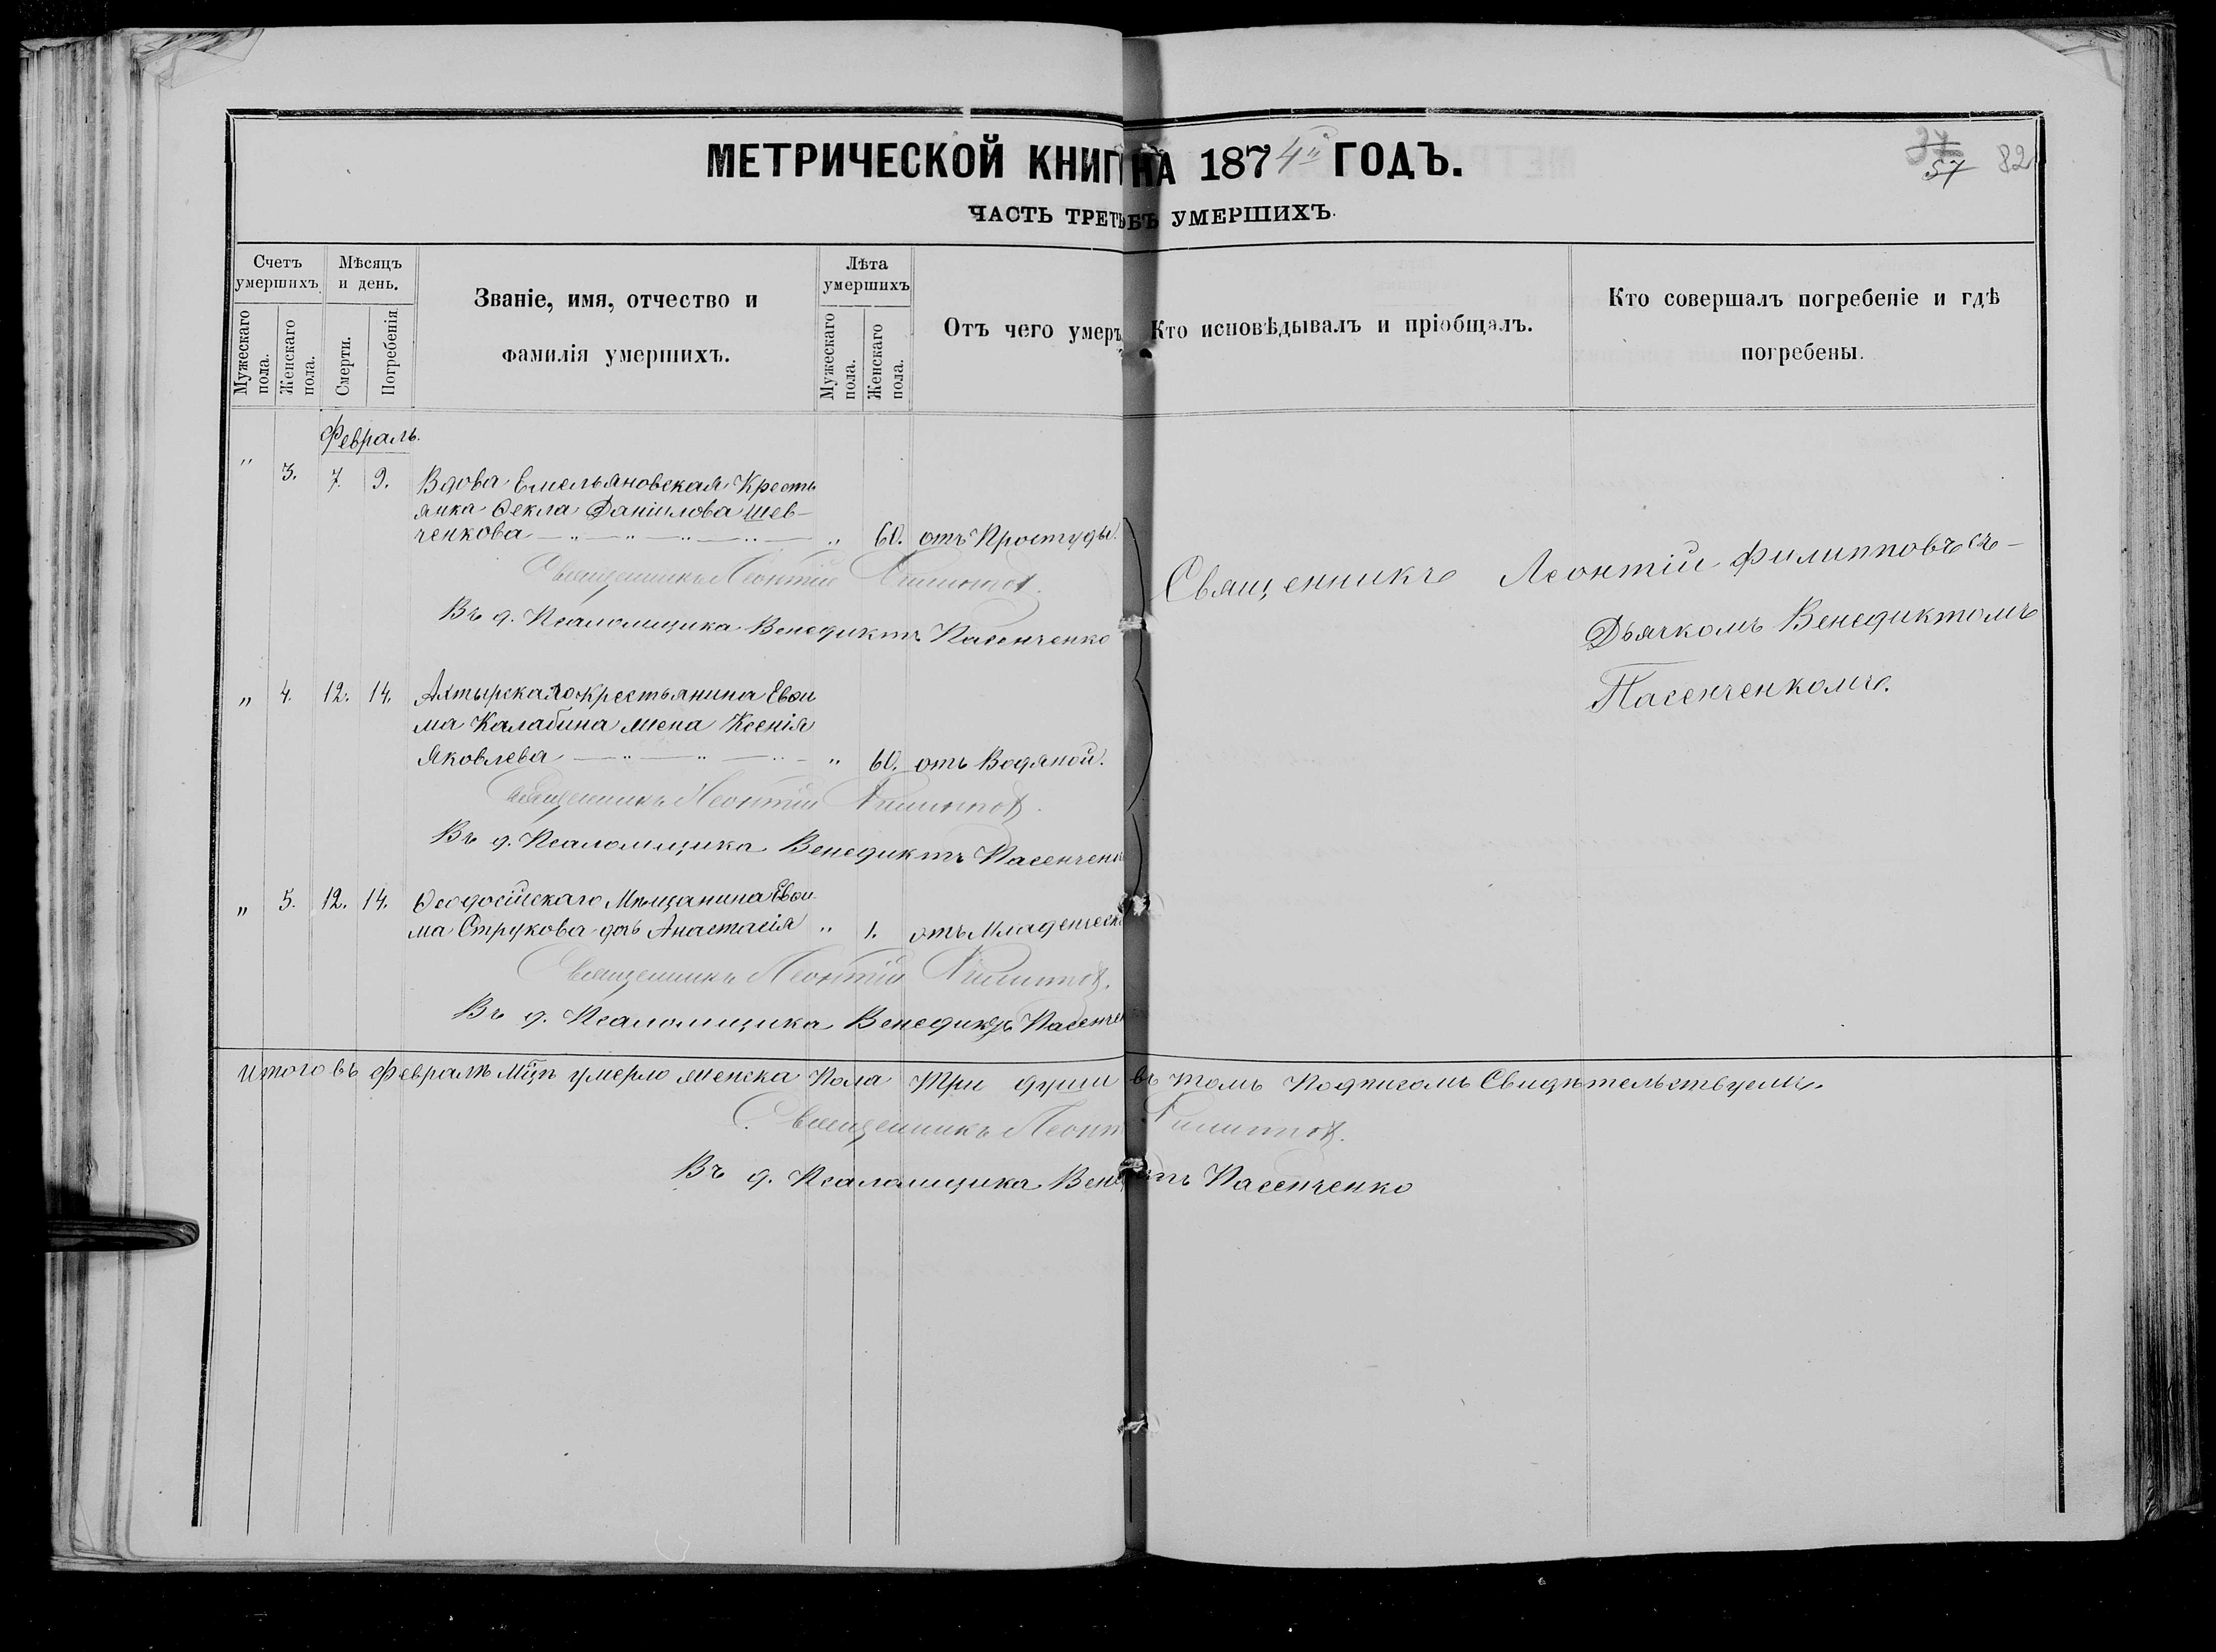 МЕТРИЧЕСКОЙ КНИГ НА 1874й ГОДЪ.
37
57 82
ЧАСТЬ ТРЕТЬ БЪ УМЕРШИХЪ.
Счетъ умершихъ
Мѣсяцъ и день.
Званіе, имя, отчество и
фамилія умершихъ.
Лѣта умершихъ
Отъ чего умеръ
Кто исповѣдывалъ и пріобщалъ.
Кто совершалъ погребеніе и гдѣ
погребены.
Мужескаго пола.
Женскаго пола.
Смерти.
Погребенія
Мужескаго пола.
Женскаго пола.
Февраль.
" 3. 7. 9. Вдова Емельяновская Кресть
янка Ѳекла Даніилова Шев-
ченкова " 60. отъ Простуды.
Священникъ Леонтій Филиппов.
Въ д. Псаломщика Венедиктъ Пасенченко
Священникъ Леонтій Филипповъ съ-
Дьячкомъ Венедиктомъ
Пасенченкомъ.
" 4. 12. 14. Ахтырскаго крестьянина Евѳи
ма Калабина жена Ксенія
Яковлева " 60. отъ Водяной.
Священникъ Леонтій Филиппов.
Въ д. Псаломщика Венедиктъ Пасенченк
" 5. 12. 14. Ѳеодосійскаго Мѣщанина Евѳи
ма Струкова дочь Анастасія " 1. отъ Младенческ
Священникъ Леонтій Филиппов.
Въ д. Псаломщика Венедиктъ Пасенче
Итого въ Февралѣ Мцѣ умерло женска Пола Три души въ томъ Подписомъ Свидѣтельствуемъ.
Священникъ Леонт Филиппов.
Въ д. Псаломщика Вене ктъ Пасенченко